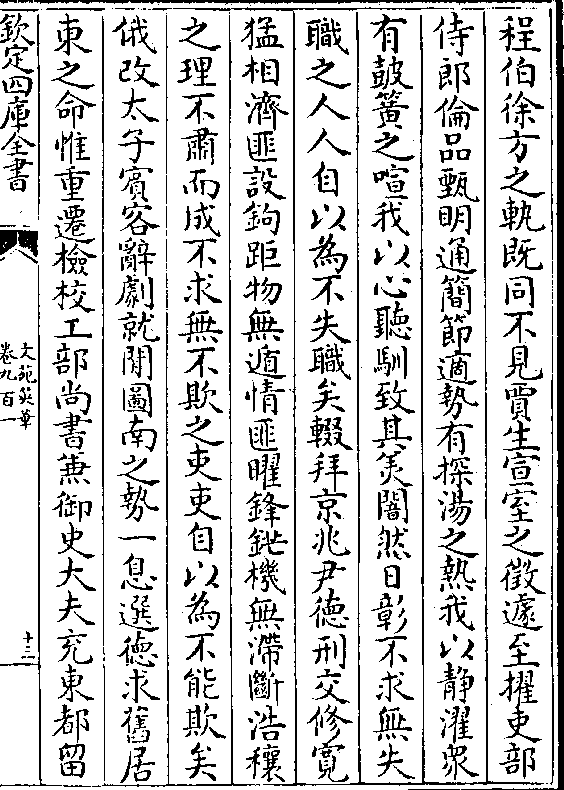 程伯徐方之軌既同不見賈生宣室之徵遽至擢吏部
侍郎倫品甄明通簡節適勢有探湯之熱我以静濯衆
有鼓簧之喧我以心聽馴致其美闇然日彰不求無失
職之人人自以為不失職矣輟拜京兆尹德刑交修寛
猛相濟匪設鉤距物無遁情匪曜鋒鋩機無滯斷浩穰
之理不肅而成不求無不欺之吏吏自以為不能欺矣
俄改太子賓客辭劇就閒圖南之勢一息選徳求舊居
東之命惟重遷檢校工部尚書兼御史大夫充東都留
欽定四庫全書
文苑英華
卷九百一
十三